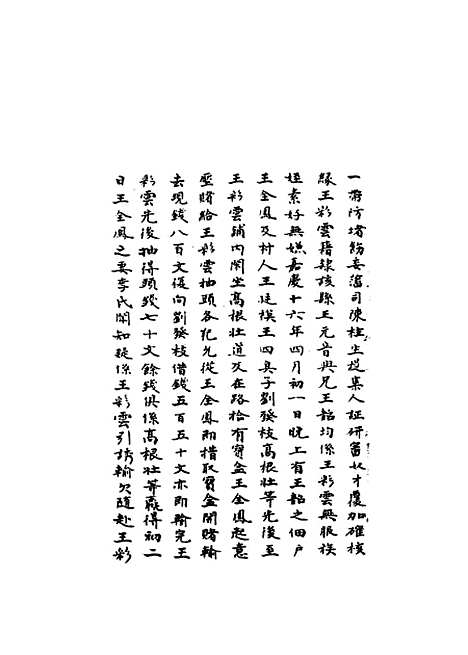 一齊防堵飭委潘司陳桂生提集人証研審奴才覆加確核
緣王彩雲籍隸該縣王元音與兄王韶均係王彩雲無服族
姪素好無嫌嘉慶十六年四月初一日晚上有王韶之佃戶
王全鳳及村人王廷模王四臭子劉發枝高根壯等先後至
王彩雲鋪內閑坐高根壯道及在路拾有寶盒王全鳳起意
壓賭給王彩雲抽頭各犯允從王全鳳即措取寶盒開賭輸
去現錢八百文復向劉發枝借錢五百五十文亦即輸完王
彩雲先後抽得頭錢七十文餘錢俱係高根壯等贏得初二
日王全鳳之妻李氏聞知疑係王彩雲引誘輸欠隨赴王彩